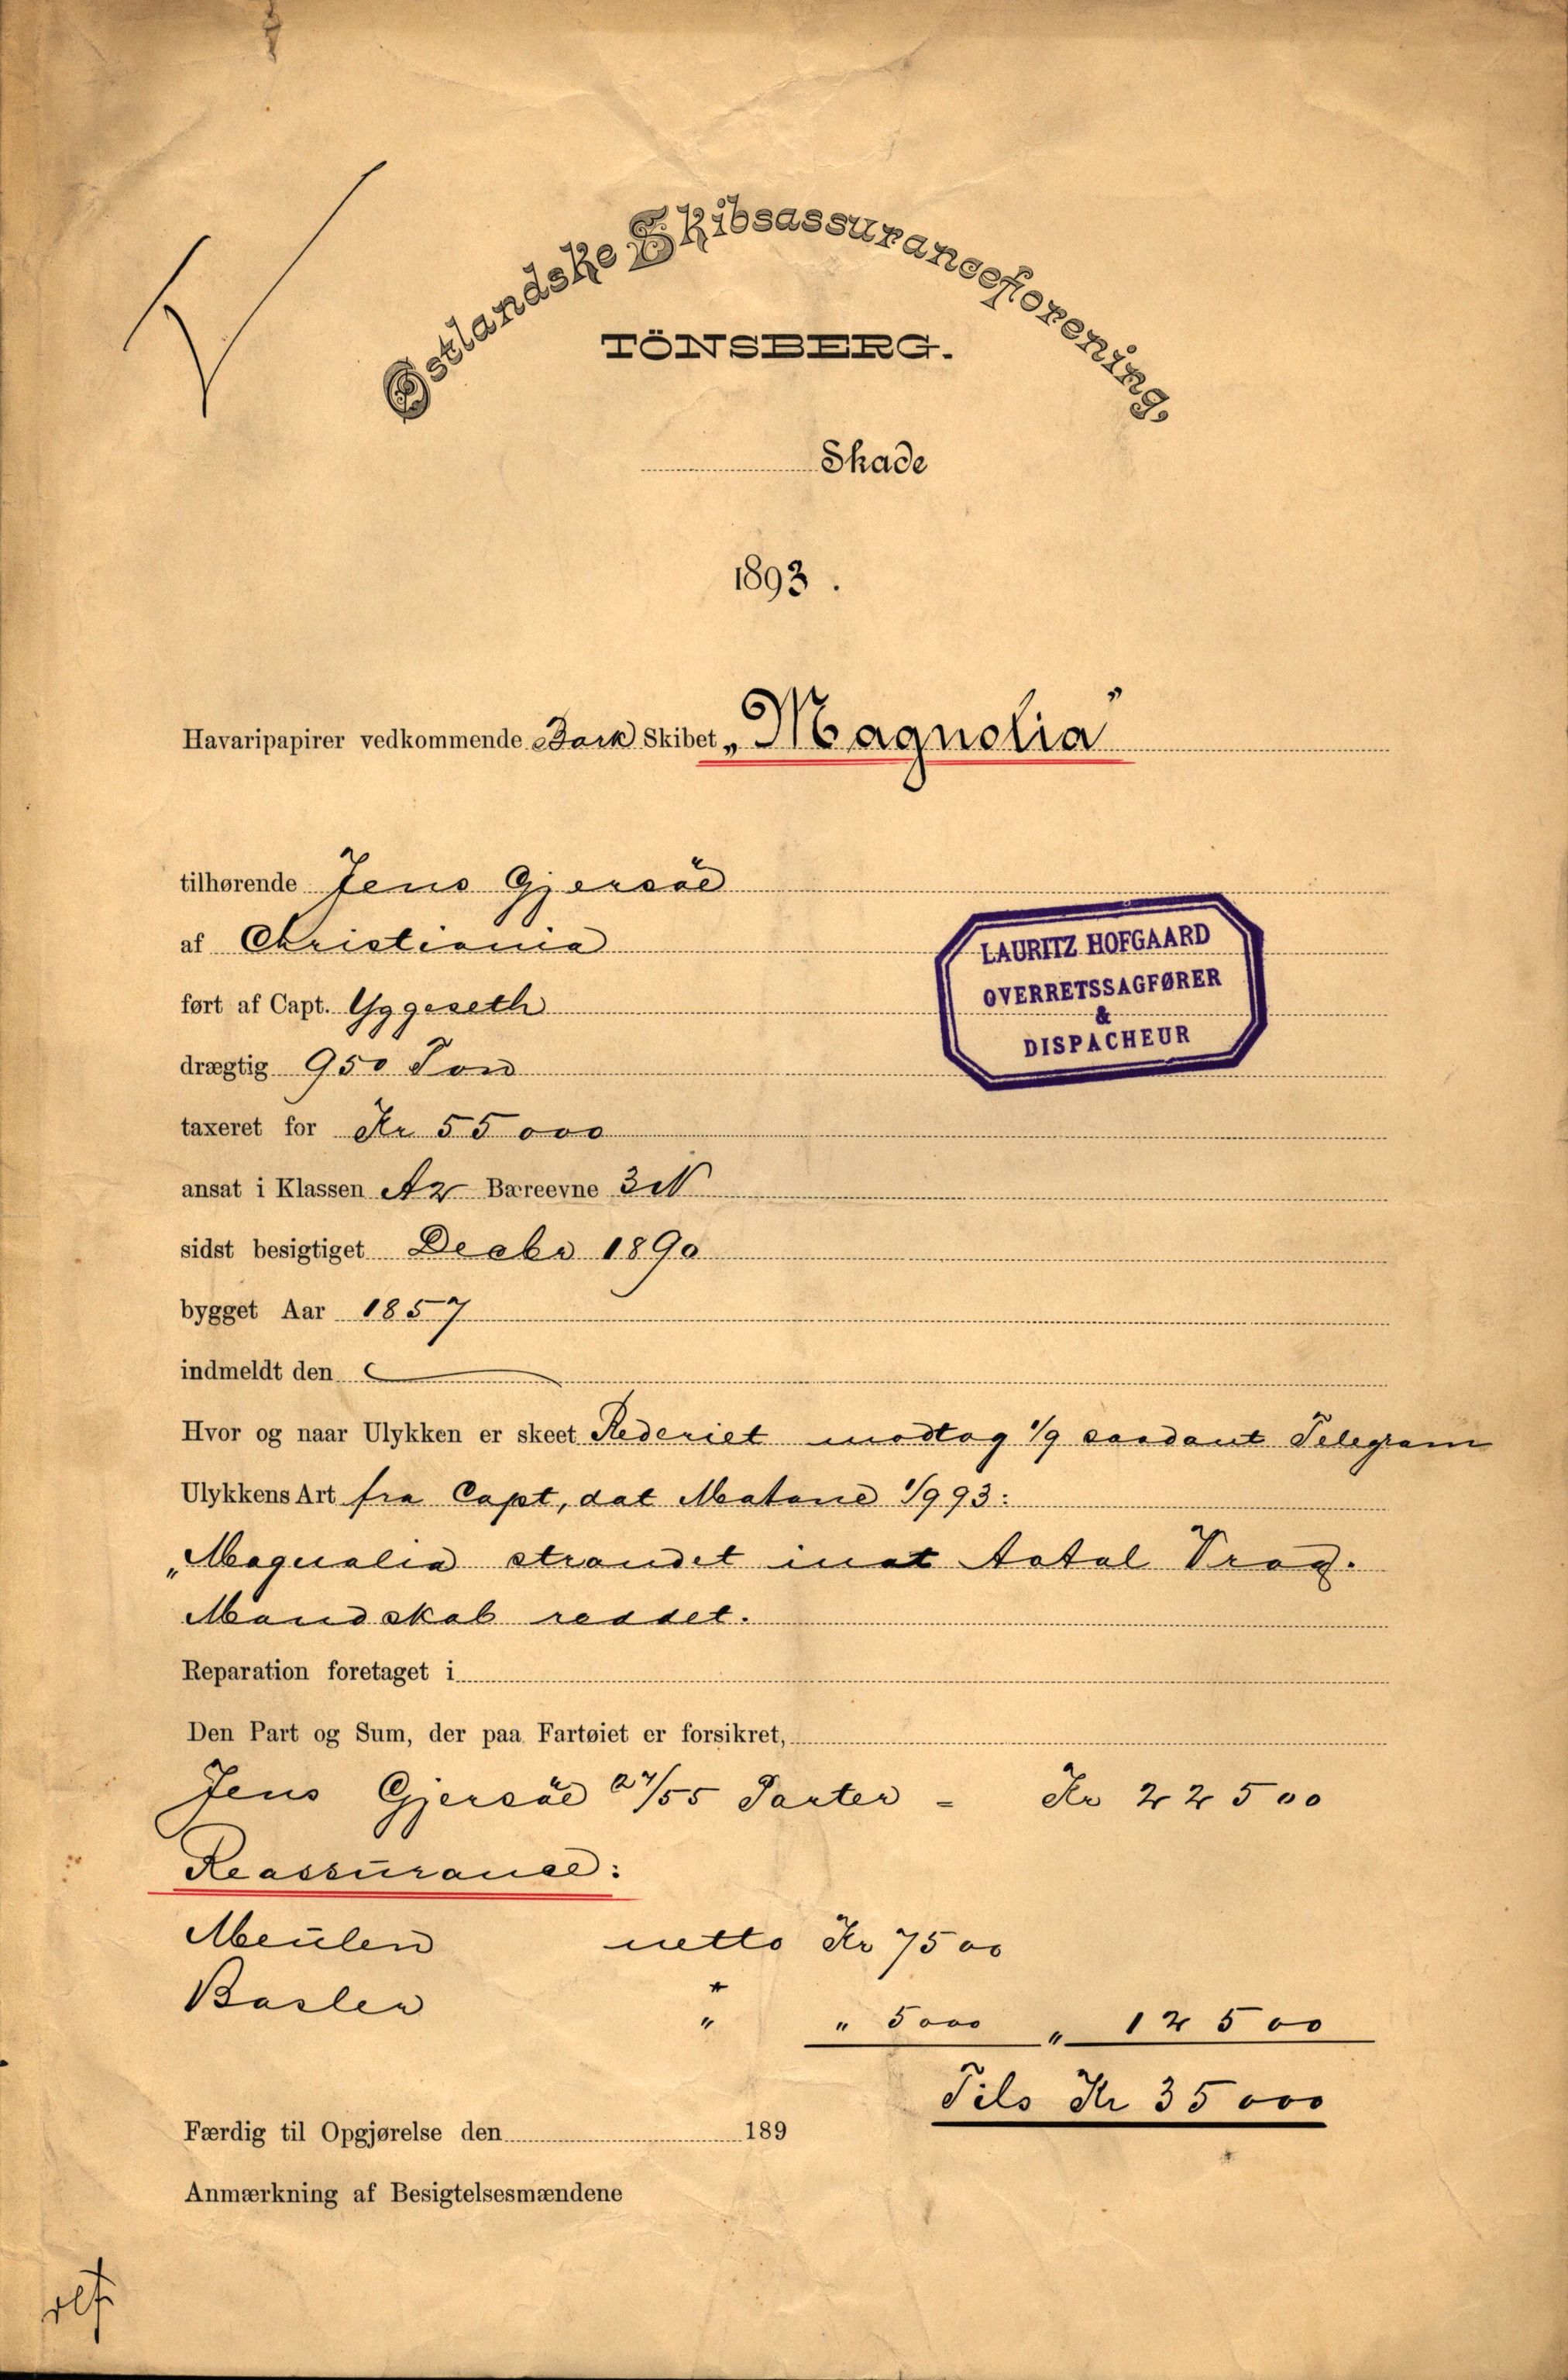 Østlandske Skibsassuranceforening,
TÖNSBERG.
Skade
1893.
Havaripapirer vedkommende Bark Skibet „Magnolia"
tilhørende Jens Gjersöe
af Christiania
LAURITZ HOFGAARD
OVERRETSSAGFØRER
&
DISPACHEUR
ført af Capt. Yggeseth
drægtig 950 Ton
taxeret for Kr 55000
ansat i Klassen A2 Bæreevne 3
sidst besigtiget Decbr 1890
bygget Aar 1857
indmeldt den
Hvor og naar Ulykken er skeet Rederiet modtog 1/9 saadant Telegram
Ulykkens Art fra Capt, dat Matane 1/9 93:
„Magnolia strandet inat total Vrag.
Mandskab reddet.
Reparation foretaget i
Den Part og Sum, der paa Fartøiet er forsikret,
Jens Gjersöe /55 Parter = Kr 22500
Reassurance:
netto Kr 7500
Basler " " 5000 " 12500
Tils Kr 35000
Færdig til Opgjørelse den 189
Anmærkning af Besigtelsesmændene